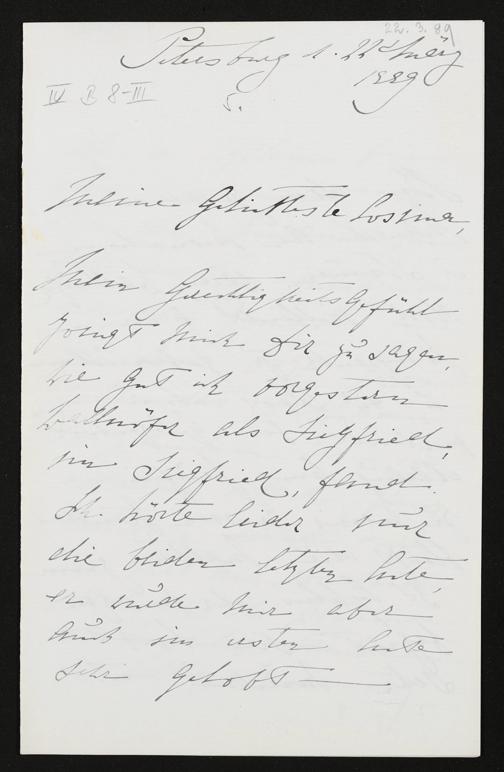 22. 3. 89
Petersburg d. 22t März
1889
IV B 8-III
5.
Meine Geliebteste Cosima,
Mein Gerechtigkeitsgefühl
zwingt mich Dir zu sagen,
wie gut ich vorgestern
Wallnöfer als Siegfried,
im Siegfried, fand.
Ich hörte leider nur
die beiden letzten Acte,
er wurde mir aber
auch im ersten Acte
sehr gelobt —